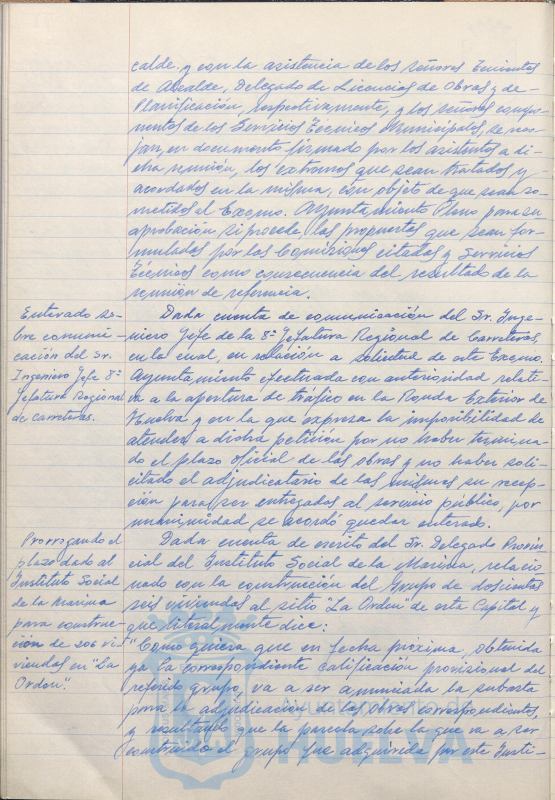 calde, y con la asistencia de los señores Tenientes
de Alcalde, Delegado de Licencias de Obras y de-
Planificación, respectivamente, y los señores compo-
nentes de los Servicios Técnicos Municipales, se reco-
jan, en documento firmado por los asistentes a di-
cha reunión, los extremos que sean tratados y
acordados en la misma, con objeto de que sean so-
metidos al Excmo. Ayuntamiento Pleno para su
aprobación si procede, las propuestas que sean for-
muladas por las Comisiones citadas y Servicios
Técnicos como consecuencia del resultado de la
reunión de referencia.
Enterado so-
bre comuni-
cación del Sr.
Ingeniero Jefe 8ª
Jefatura Regional
de Carreteras.
Dada cuenta de comunicación del Sr. Inge-
niero Jefe de la 8ª Jefatura Regional de Carreteras,
en la cual, en relación a solicitud de este Excmo.
Ayuntamiento efectuada con anterioridad relati-
va a la apertura de tráfico en la Ronda Exterior de
Huelva y en la que expresa la imposibilidad de
atender a dicha petición por no haber termina-
do el plazo oficial de las obras y no haber soli-
citado el adjudicatario de las mismas su recep-
ción para ser entregadas al servicio público, por
unanimidad se acordó quedar enterado.
Prorrogando el
plazo dado al
Instituto Social
de la Marina
para construc-
ción de 206 vi-
viendas en "La
Orden".
Dada cuenta de escrito del Sr. Delegado Provin-
cial del Instituto Social de la Marina, relacio
nado con la construcción del Grupo de doscientas
seis viviendas al sitio "La Orden" de esta Capital y
que literalmente dice:
"Como quiera que en fecha próxima, obtenida
ya la correspondiente calificación provisional del
referido grupo, va a ser anunciada la subasta
para la adjudicación de las obras correspondientes,
y resultando que la parcela sobre la que va a ser
construido el grupo fue adquirida por este Insti-
HUELVA